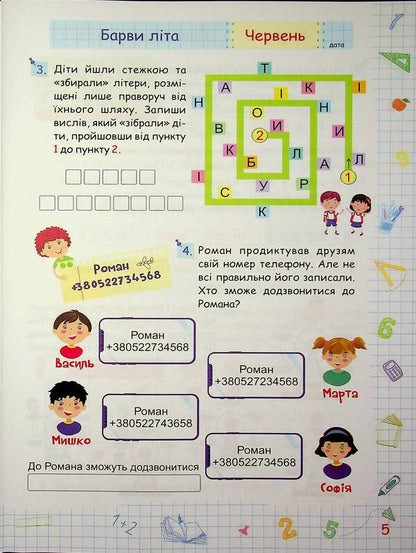 Барви літа
Червень
дата
3. Діти йшли стежкою та
«збирали» літери, розмі-
щені лише праворуч від
їхнього шляху. Запиши
вислів, який «зібрали» ді-
ти, пройшовши від пункту
1 до пункту 2.
Т
А І К І
Н Н
О
В И И
2
К Л А Л
Б
1
І С У Р
К
4. Роман продиктував друзям
свій номер телефону. Але не
всі правильно його записали.
Хто зможе додзвонитися до
Романа?
Роман
+380522734568
Роман
+380522734568
Василь
Роман
+380527234568
Марта
Роман
+380522743658
Мишко
Роман
+380522734568
Софія
До Романа зможуть додзвонитися
1+2
2 5
5